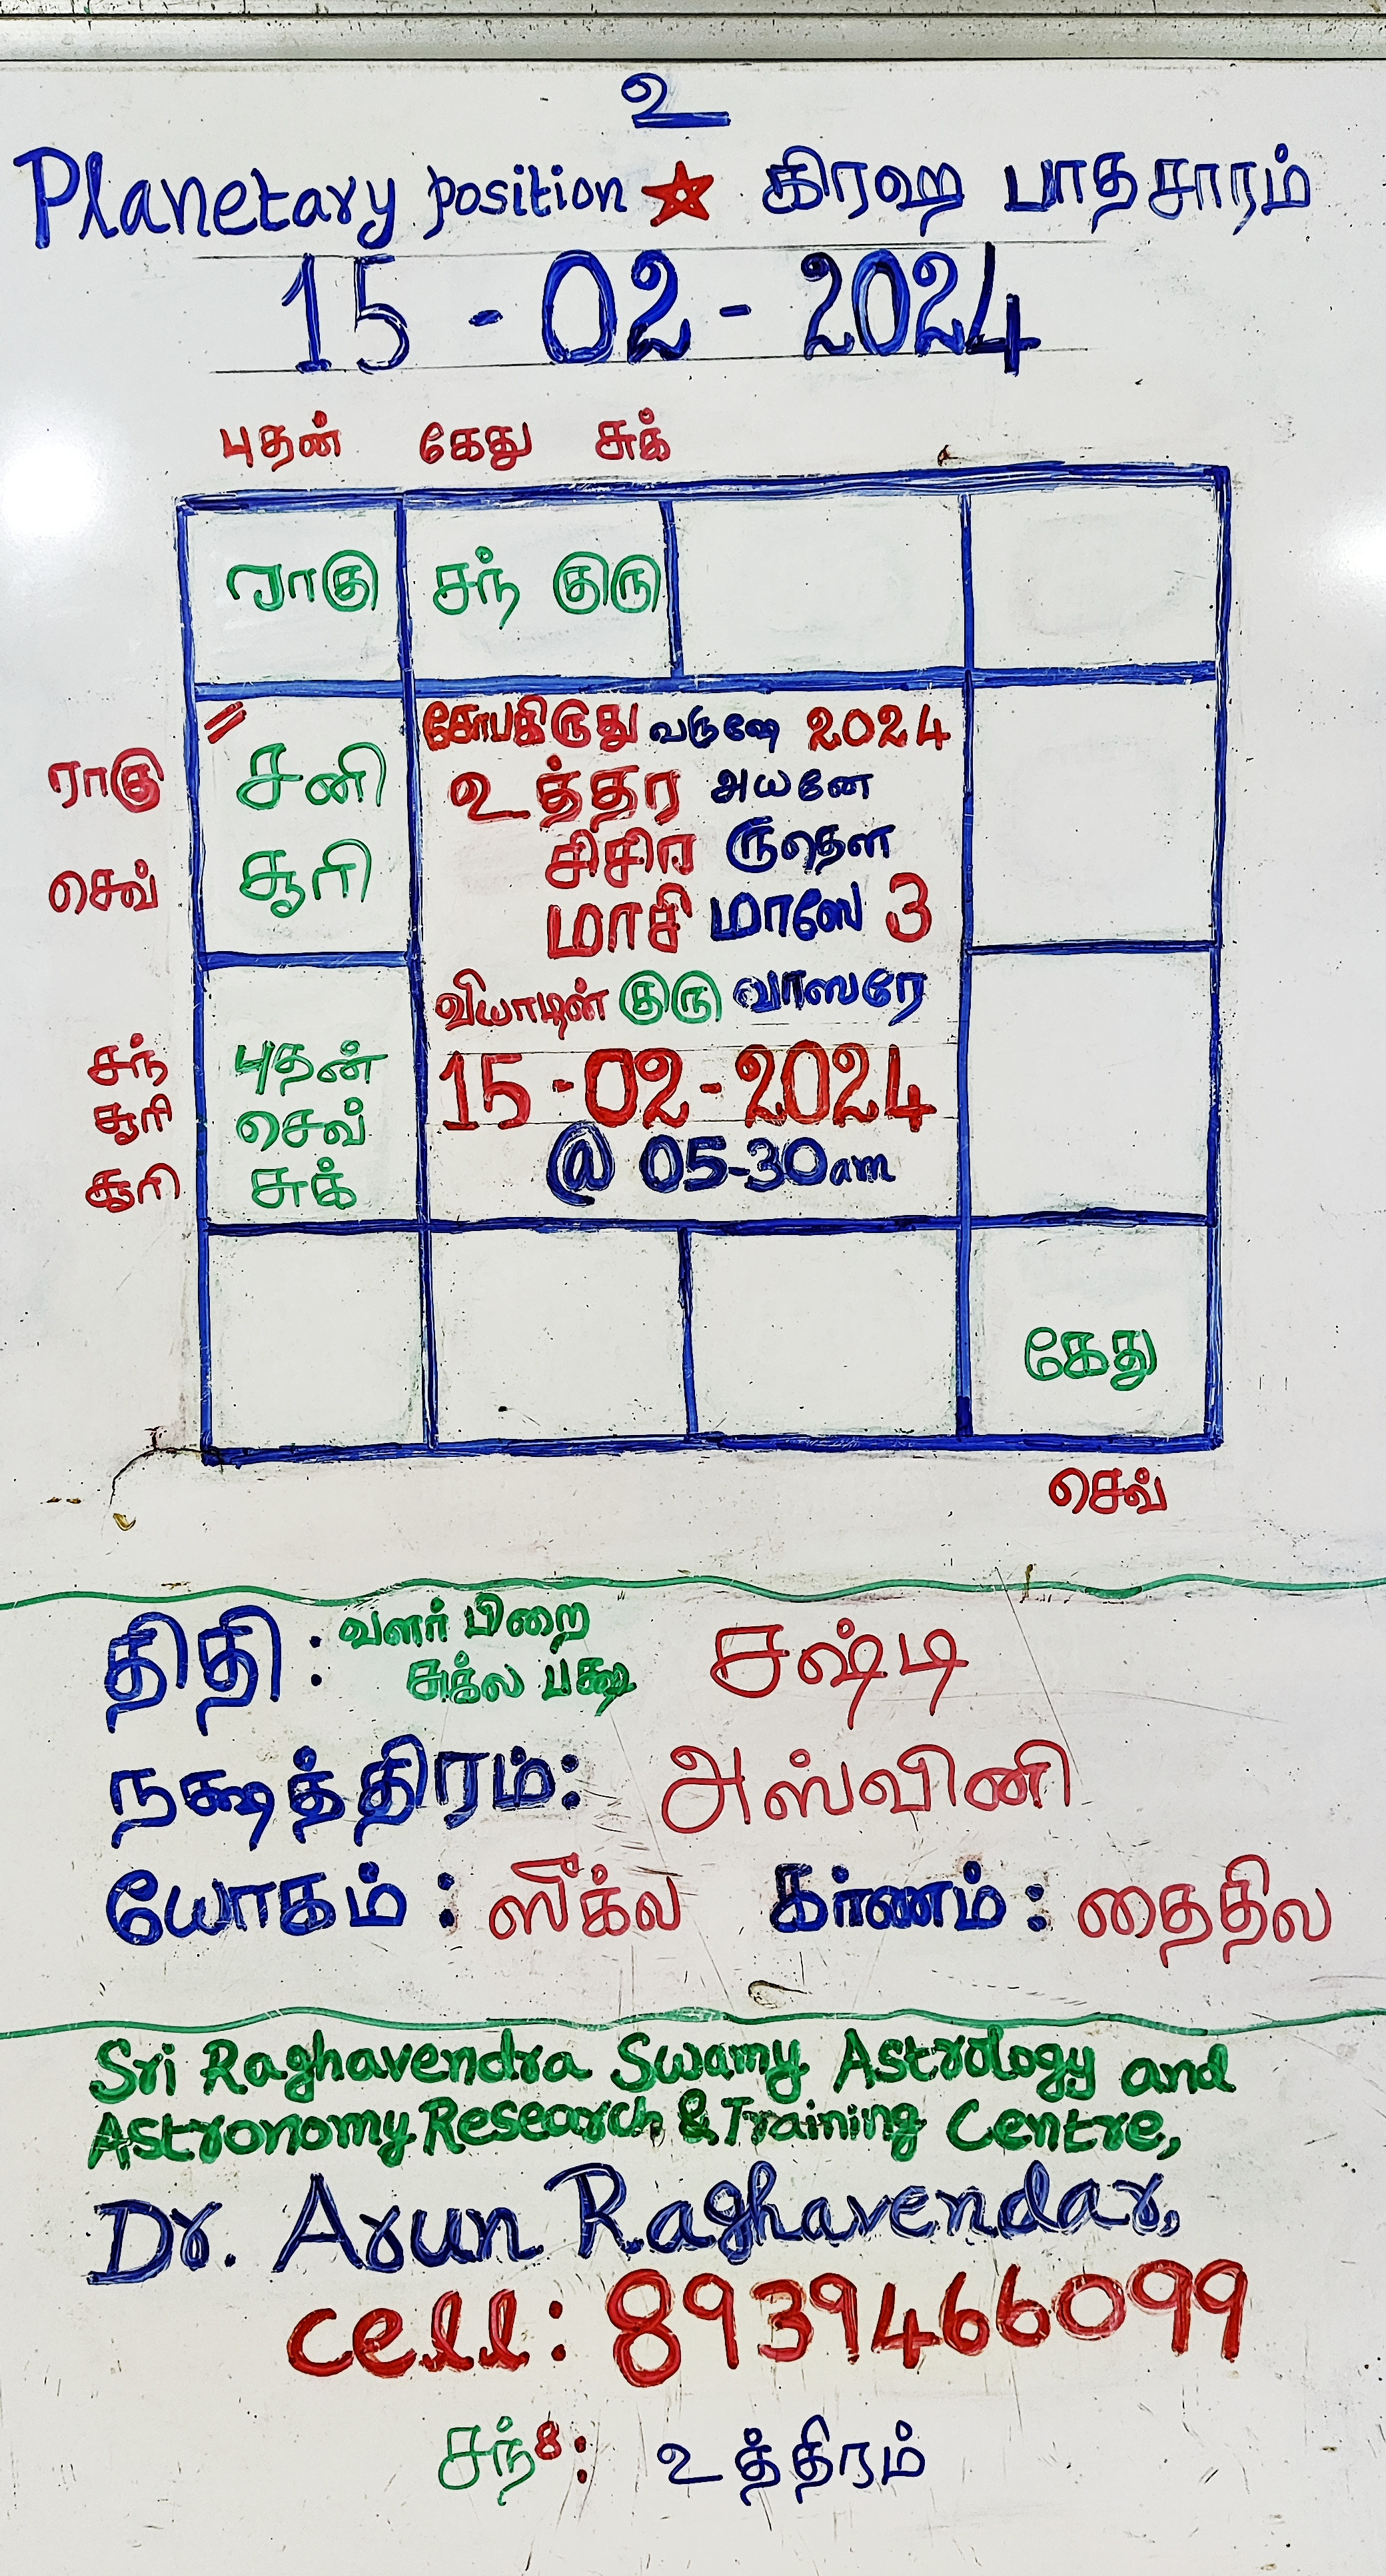 உ
Planetary position ★ கிரஹ பாதசாரம்
15 - 02 - 2024
புதன் கேது சுக்
ராகு சந் குரு
சோபகிருது வருஷே 2024
ராகு சனி உத்தர அயனே
செவ் சூரி சிசிர ருதௌ
மாசி மாஸே 3
வியாழன் குரு வாஸரே
சந் புதன் 15-02-2024
சூரி செவ் @ 05-30am
சூரி சுக்
கேது
செவ்
திதி : வளர் பிறை சஷ்டி
சுக்ல பக்ஷ
நக்ஷத்திரம்: அஸ்வினி
யோகம் : ஸீக்ல கர்ணம் : தைதில
Sri Raghavendra Swamy Astrology and
Astronomy Research & Training Centre,
Dr. Arun Raghavendar,
cell: 8939466099
சந்8: உத்திரம்